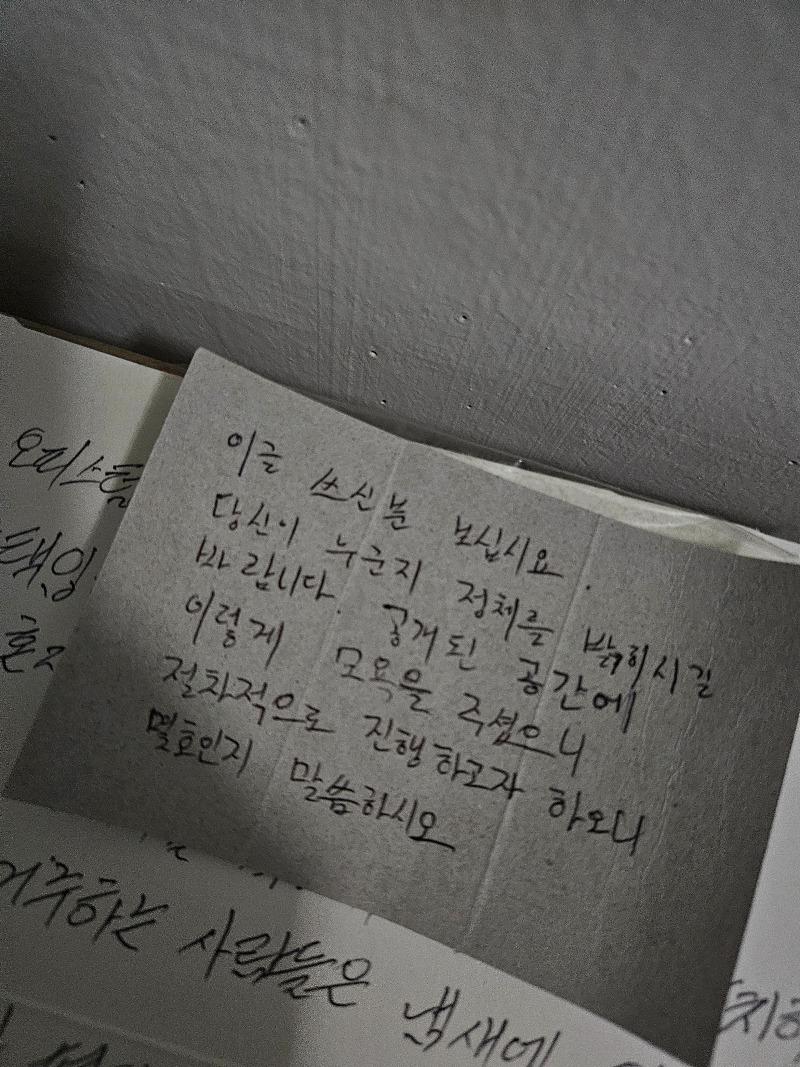 이글 쓰신분 보십시요.
당신이 누군지 정체를 밝히시길
바랍니다. 공개된 공간에
이렇게 모욕을 주셨으니
절차적으로 진행하고자 하오니
몇호인지 말씀하시오
오피스텔
책임
혼자
거주하는 사람들은 냄새에